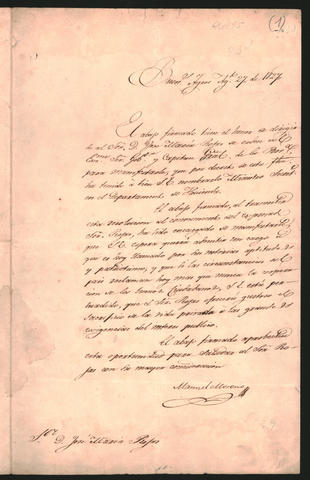 (1)
Buen.s Ayres Ag.to 27 de 1827
El abajo firmado tiene el honor de dirigirse
al Sor. D. José María Rojas de orden del
Exmo. Sor. Gob.or y Capitan Gral. de la Prov.
para manifestarle, que por decreto de esta fha.
ha tenido a bien S.E. nombrarle Ministro Secret.
en el Departamento de Hacienda.
El abajo firmado, al transmitir
esta resolucion al conocimiento del expresado
Sor. Rojas, ha sido encargado de manifestarle
que S.E. espera querrá admitir un cargo á
que es hoy llamado por sus notorias aptitudes
y patriotismo, y que si las circunstancias del
pais reclaman hoy mas que nunca la cooperacion
de los buenos Ciudadanos, S.E. está persuadido,
que el Sor. Rojas ofrecerá gustoso el
sacrificio de la vida privada á las grandes
exigencias del interes publico.
El abajo firmado aprovecha
esta oportunidad para saludar al Sor. Rojas
con su mayor consideracion
Manuel Moreno
S.or D. José María Rojas